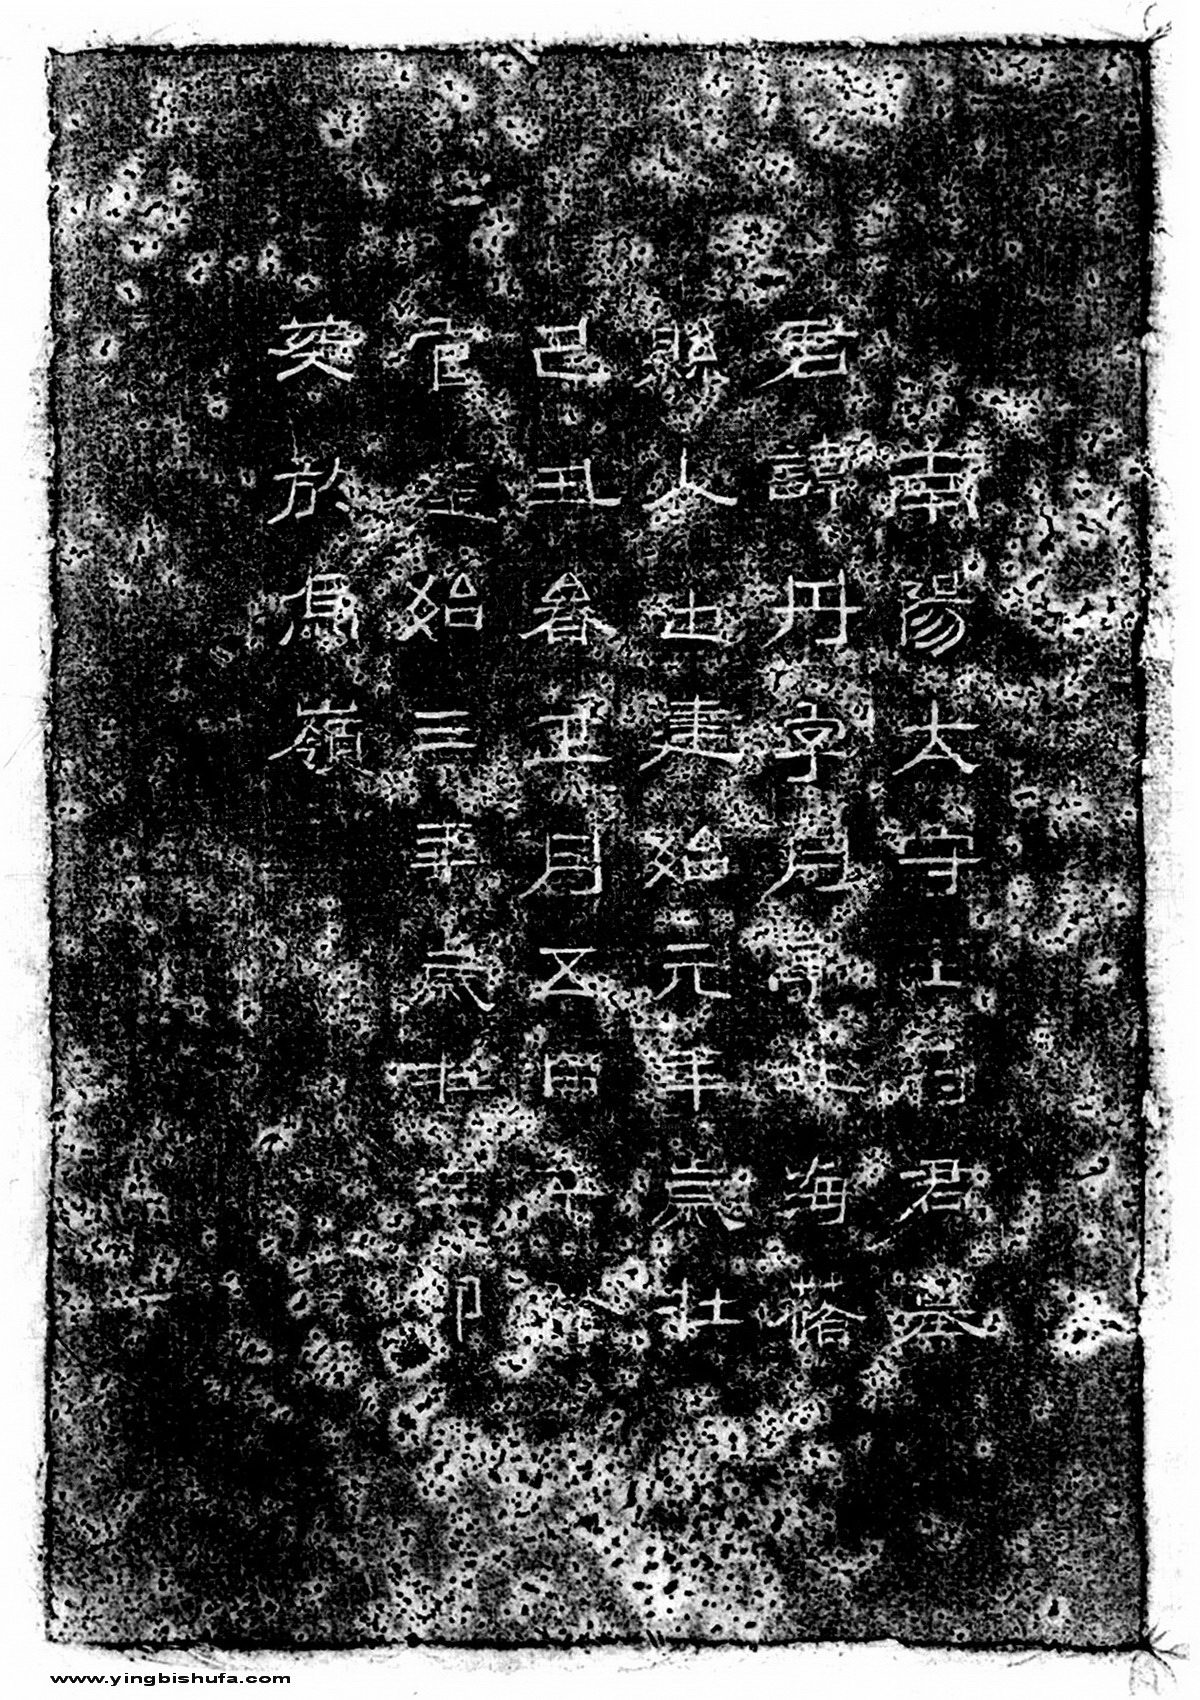 南陽太守司君墓
君諱丹字月海
縣人也建始元年歲在
己丑春正月五日卒
官始三年歲在辛卯
葬於嶺
www.yingbishufa.com